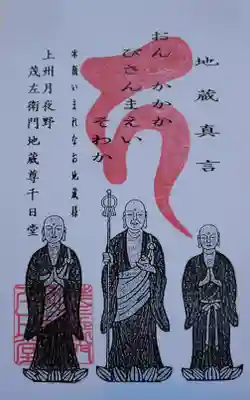 地蔵真言
おん かかか
びさんまえい
そわか
本尊いまれなお地蔵様
上州月夜野
茂左衛門地蔵尊千日堂